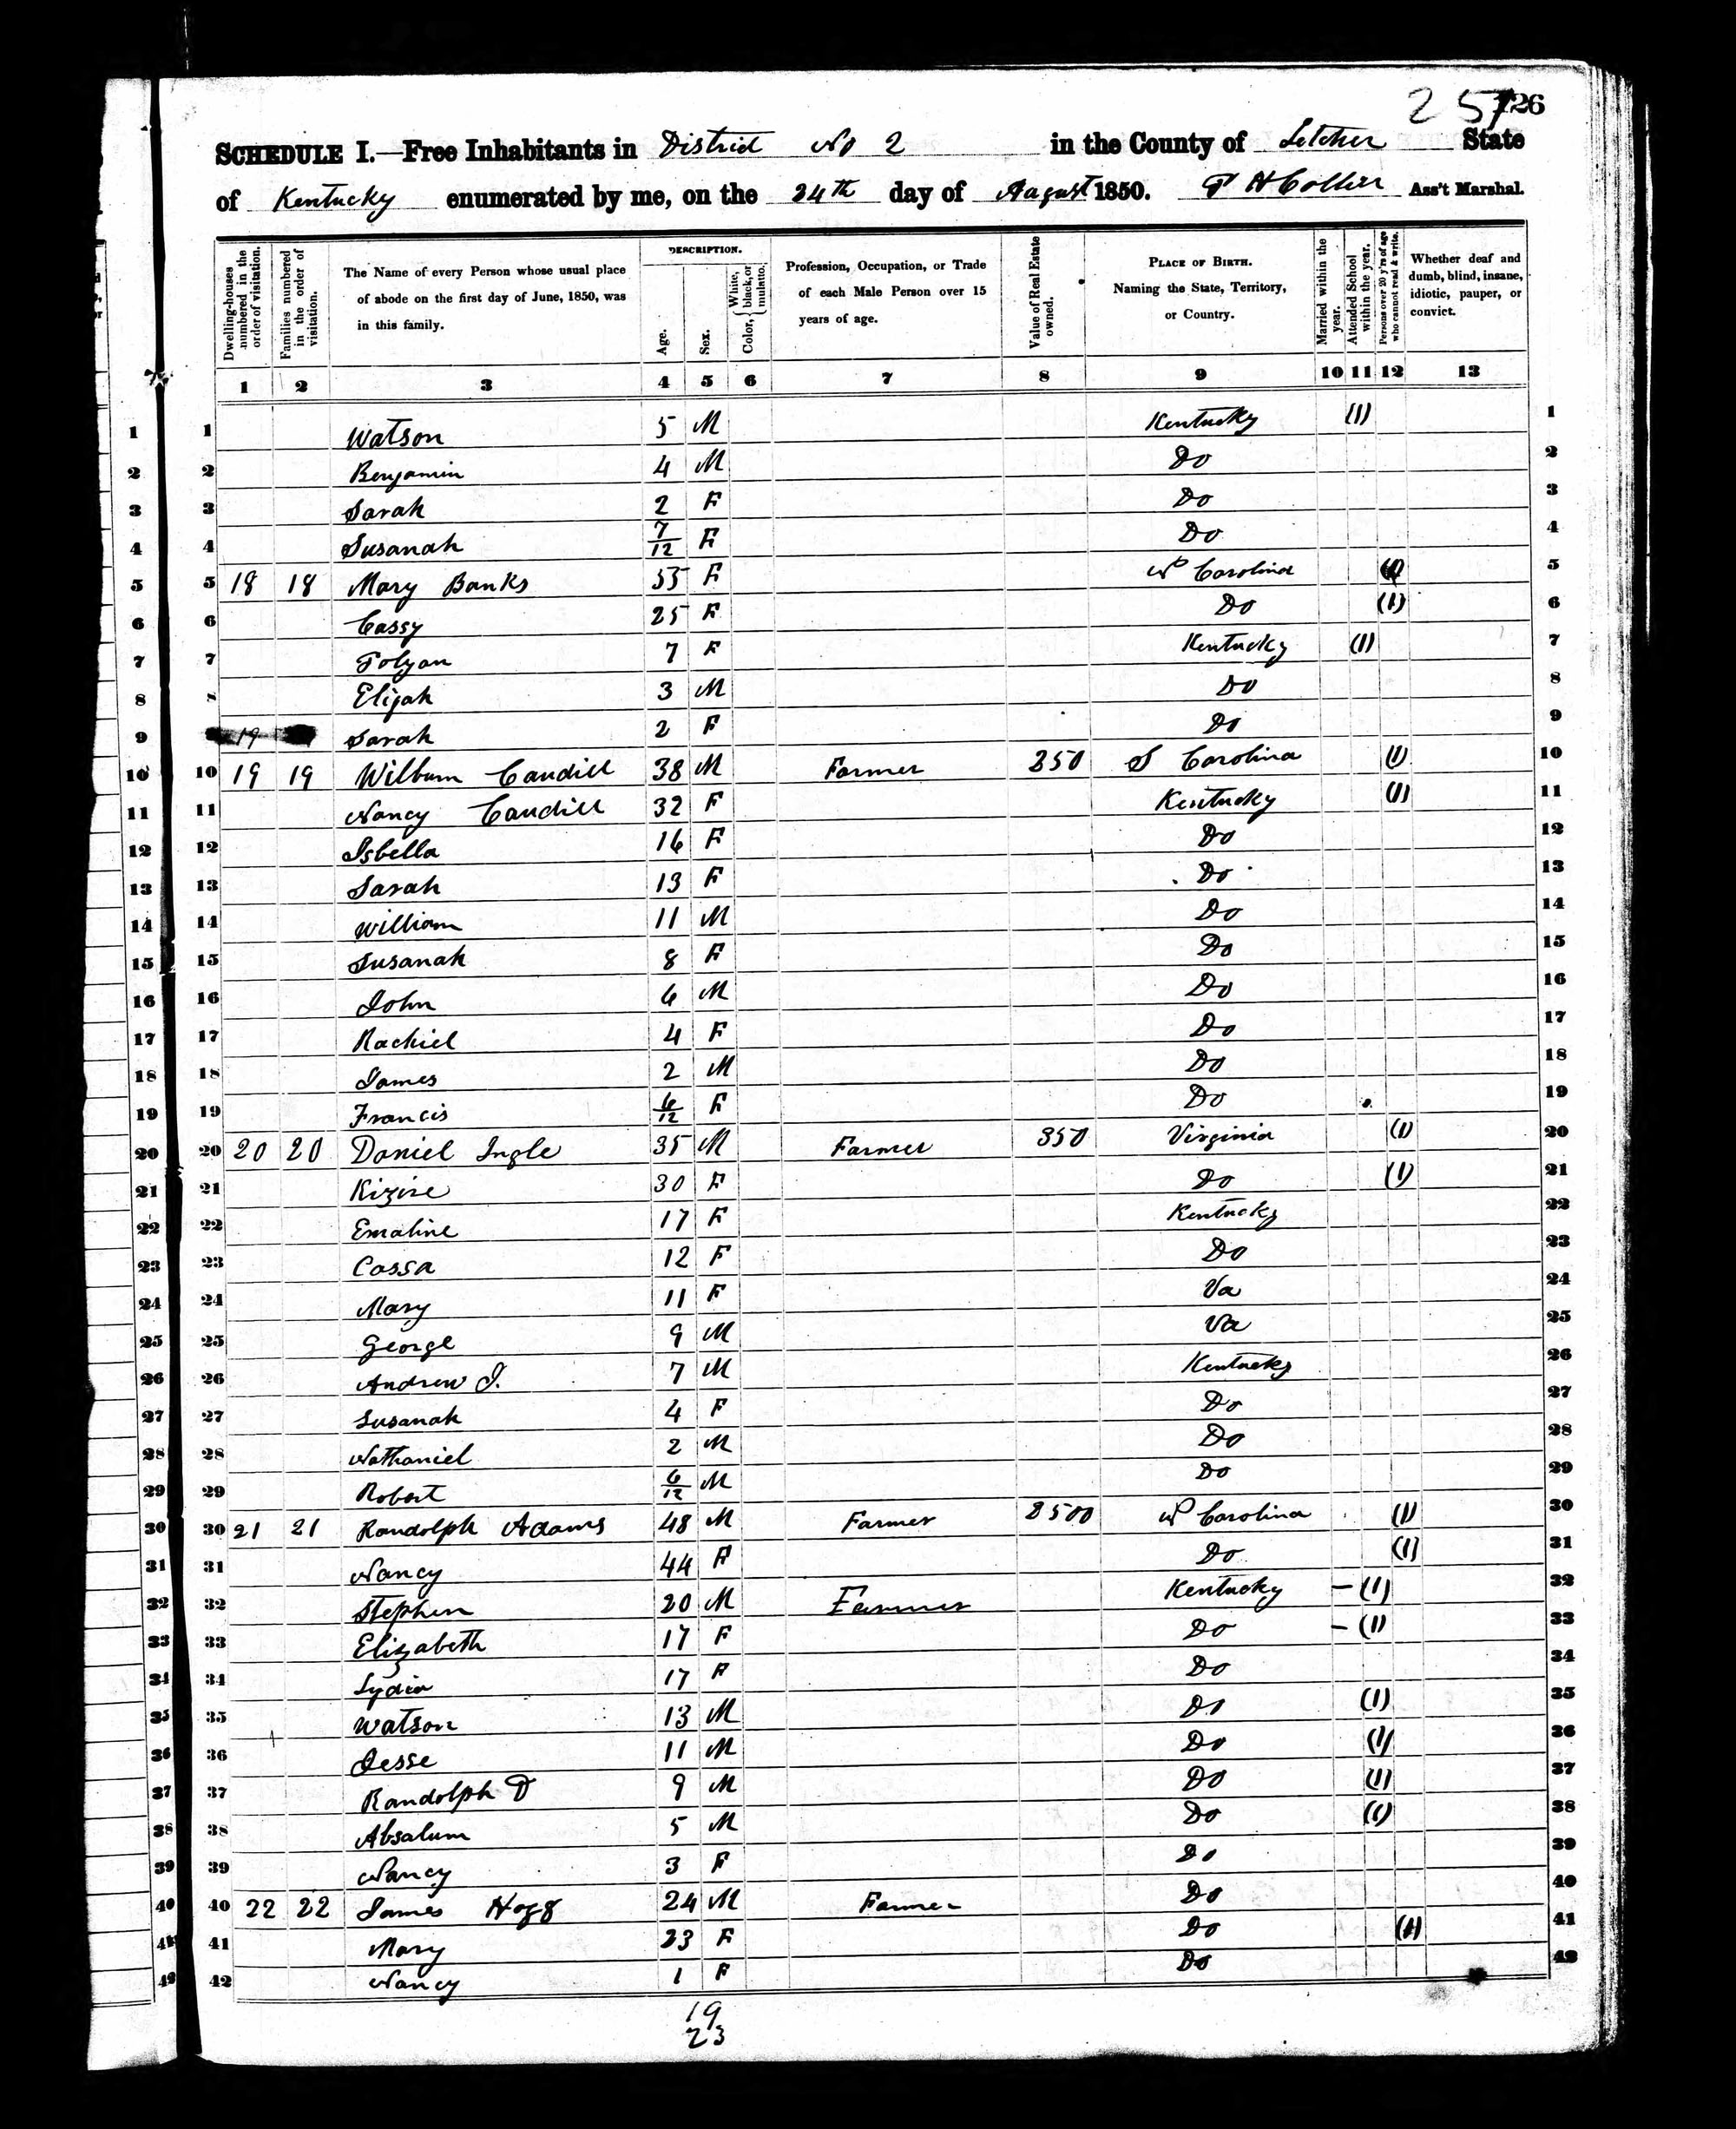 257 126
SCHEDULE I.—Free Inhabitants in District No 2 in the County of Letcher State
of Kentucky enumerated by me, on the 24th day of August 1850. T H Collier Ass't Marshal.
Dwelling-houses numbered in the order of visitation.
Families numbered in the order of visitation.
The Name of every Person whose usual place of abode on the first day of June, 1850, was in this family.
DESCRIPTION.
Age.
Sex.
Color, { White, black, or mulatto.
Profession, Occupation, or Trade of each Male Person over 15 years of age.
Value of Real Estate owned.
PLACE OF BIRTH. Naming the State, Territory, or Country.
Married within the year.
Attended School within the year.
Persons over 20 y'rs of age who cannot read & write.
Whether deaf and dumb, blind, insane, idiotic, pauper, or convict.
1 2 3 4 5 6 7 8 9 10 11 12 13
1 1 Watson 5 M Kentucky (1) 1
2 2 Benjamin 4 M Do 2
3 3 Sarah 2 F Do 3
4 4 Susanah 7/12 F Do 4
5 5 18 18 Mary Banks 55 F N Carolina (1) 5
6 6 Cassy 25 F Do (1) 6
7 7 Polyan 7 F Kentucky (1) 7
8 8 Elijah 3 M Do 8
9 19 Sarah 2 F Do 9
10 10 19 19 Wilburn Caudill 38 M Farmer 250 S Carolina (1) 10
11 11 Nancy Caudill 32 F Kentucky (1) 11
12 12 Isbella 16 F Do 12
13 13 Sarah 13 F Do 13
14 14 William 11 M Do 14
15 15 Susanah 8 F Do 15
16 16 John 6 M Do 16
17 17 Rachiel 4 F Do 17
18 18 James 2 M Do 18
19 19 Francis 6/12 F Do 19
20 20 20 20 Daniel Ingle 35 M Farmer 350 Virginia (1) 20
21 21 Kizire 30 F Do (1) 21
22 22 Emaline 17 F Kentucky 22
23 23 Cassa 12 F Do 23
24 24 Mary 11 F Va 24
25 25 George 9 M Va 25
26 26 Andrew J. 7 M Kentucky 26
27 27 Susanah 4 F Do 27
28 28 Nathaniel 2 M Do 28
29 29 Robert 6/12 M Do 29
30 30 21 21 Randolph Adams 48 M Farmer 2500 N Carolina (1) 30
31 31 Nancy 44 F Do (1) 31
32 32 Stephen 20 M Farmer Kentucky – (1) 32
33 33 Elizabeth 17 F Do – (1) 33
34 34 Lydia 17 F Do 34
35 35 Watson 13 M Do (1) 35
36 36 Jesse 11 M Do (1) 36
37 37 Randolph D 9 M Do (1) 37
38 38 Absalum 5 M Do (1) 38
39 39 Nancy 3 F Do 39
40 40 22 22 James Hogg 24 M Farmer Do 40
41 41 Mary 23 F Do (1) 41
42 42 Nancy 1 F Do 42
19
23